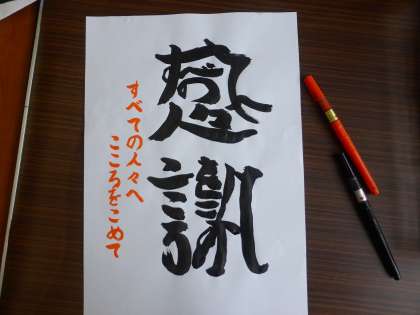 感謝
すべての人々へ
こころをこめて